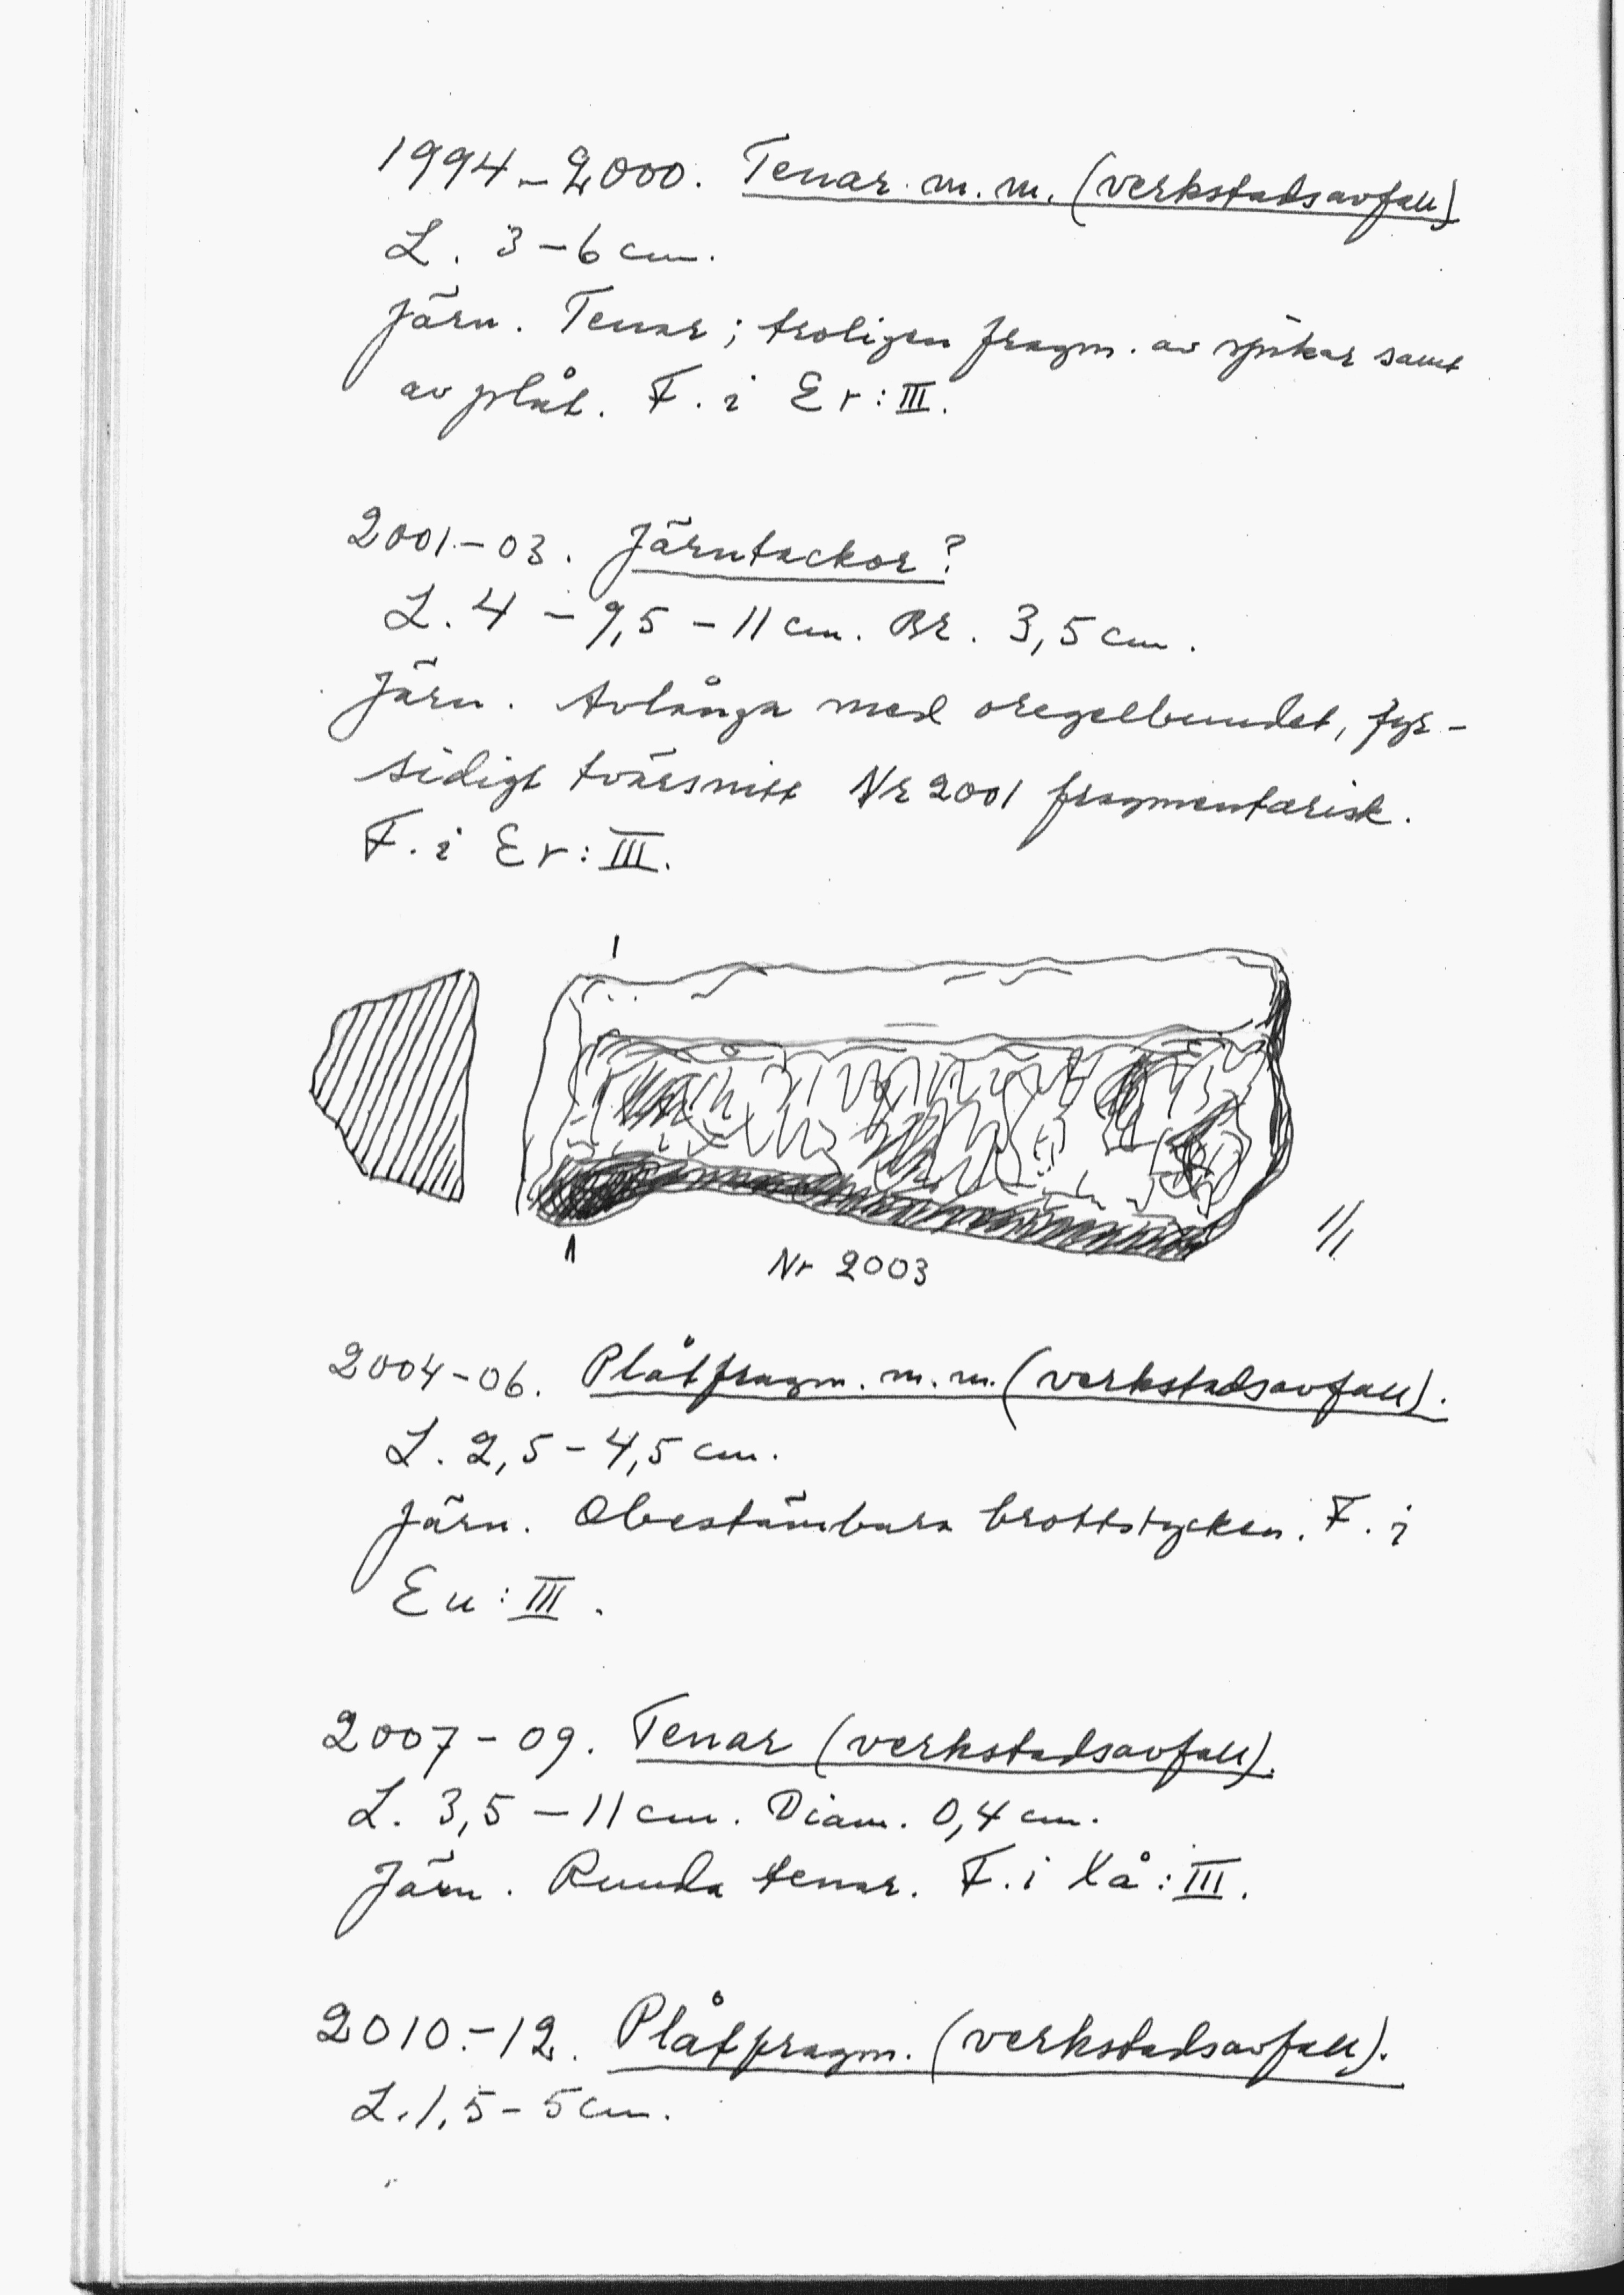 1994-2000. Tenar m.m. (verkstadsavfall)
L. 3-6 cm.
Järn. Tenar; troligen fragm. av spikar samt
av plåt. F. i Er:III.
2001-03. Järntackor?
L. 4 - 9,5 - 11 cm. Br. 3,5 cm.
Järn. Avlånga med oregelbundet, fyr-
sidigt tvärsnitt Nr 2001 fragmentarisk.
F. i Er:III.
Nr 2003
1/1
2004-06. Plåtfragm. m.m. (verkstadsavfall).
L. 2,5-4,5 cm.
Järn. Obestämbara brottstycken. F. i
Eu:III.
2007-09. Tenar (verkstadsavfall).
L. 3,5-11 cm. Diam. 0,4 cm.
Järn. Runda tenar. F. i Xå:III.
2010-12. Plåtfragm. (verkstadsavfall).
L. 1,5-5 cm.